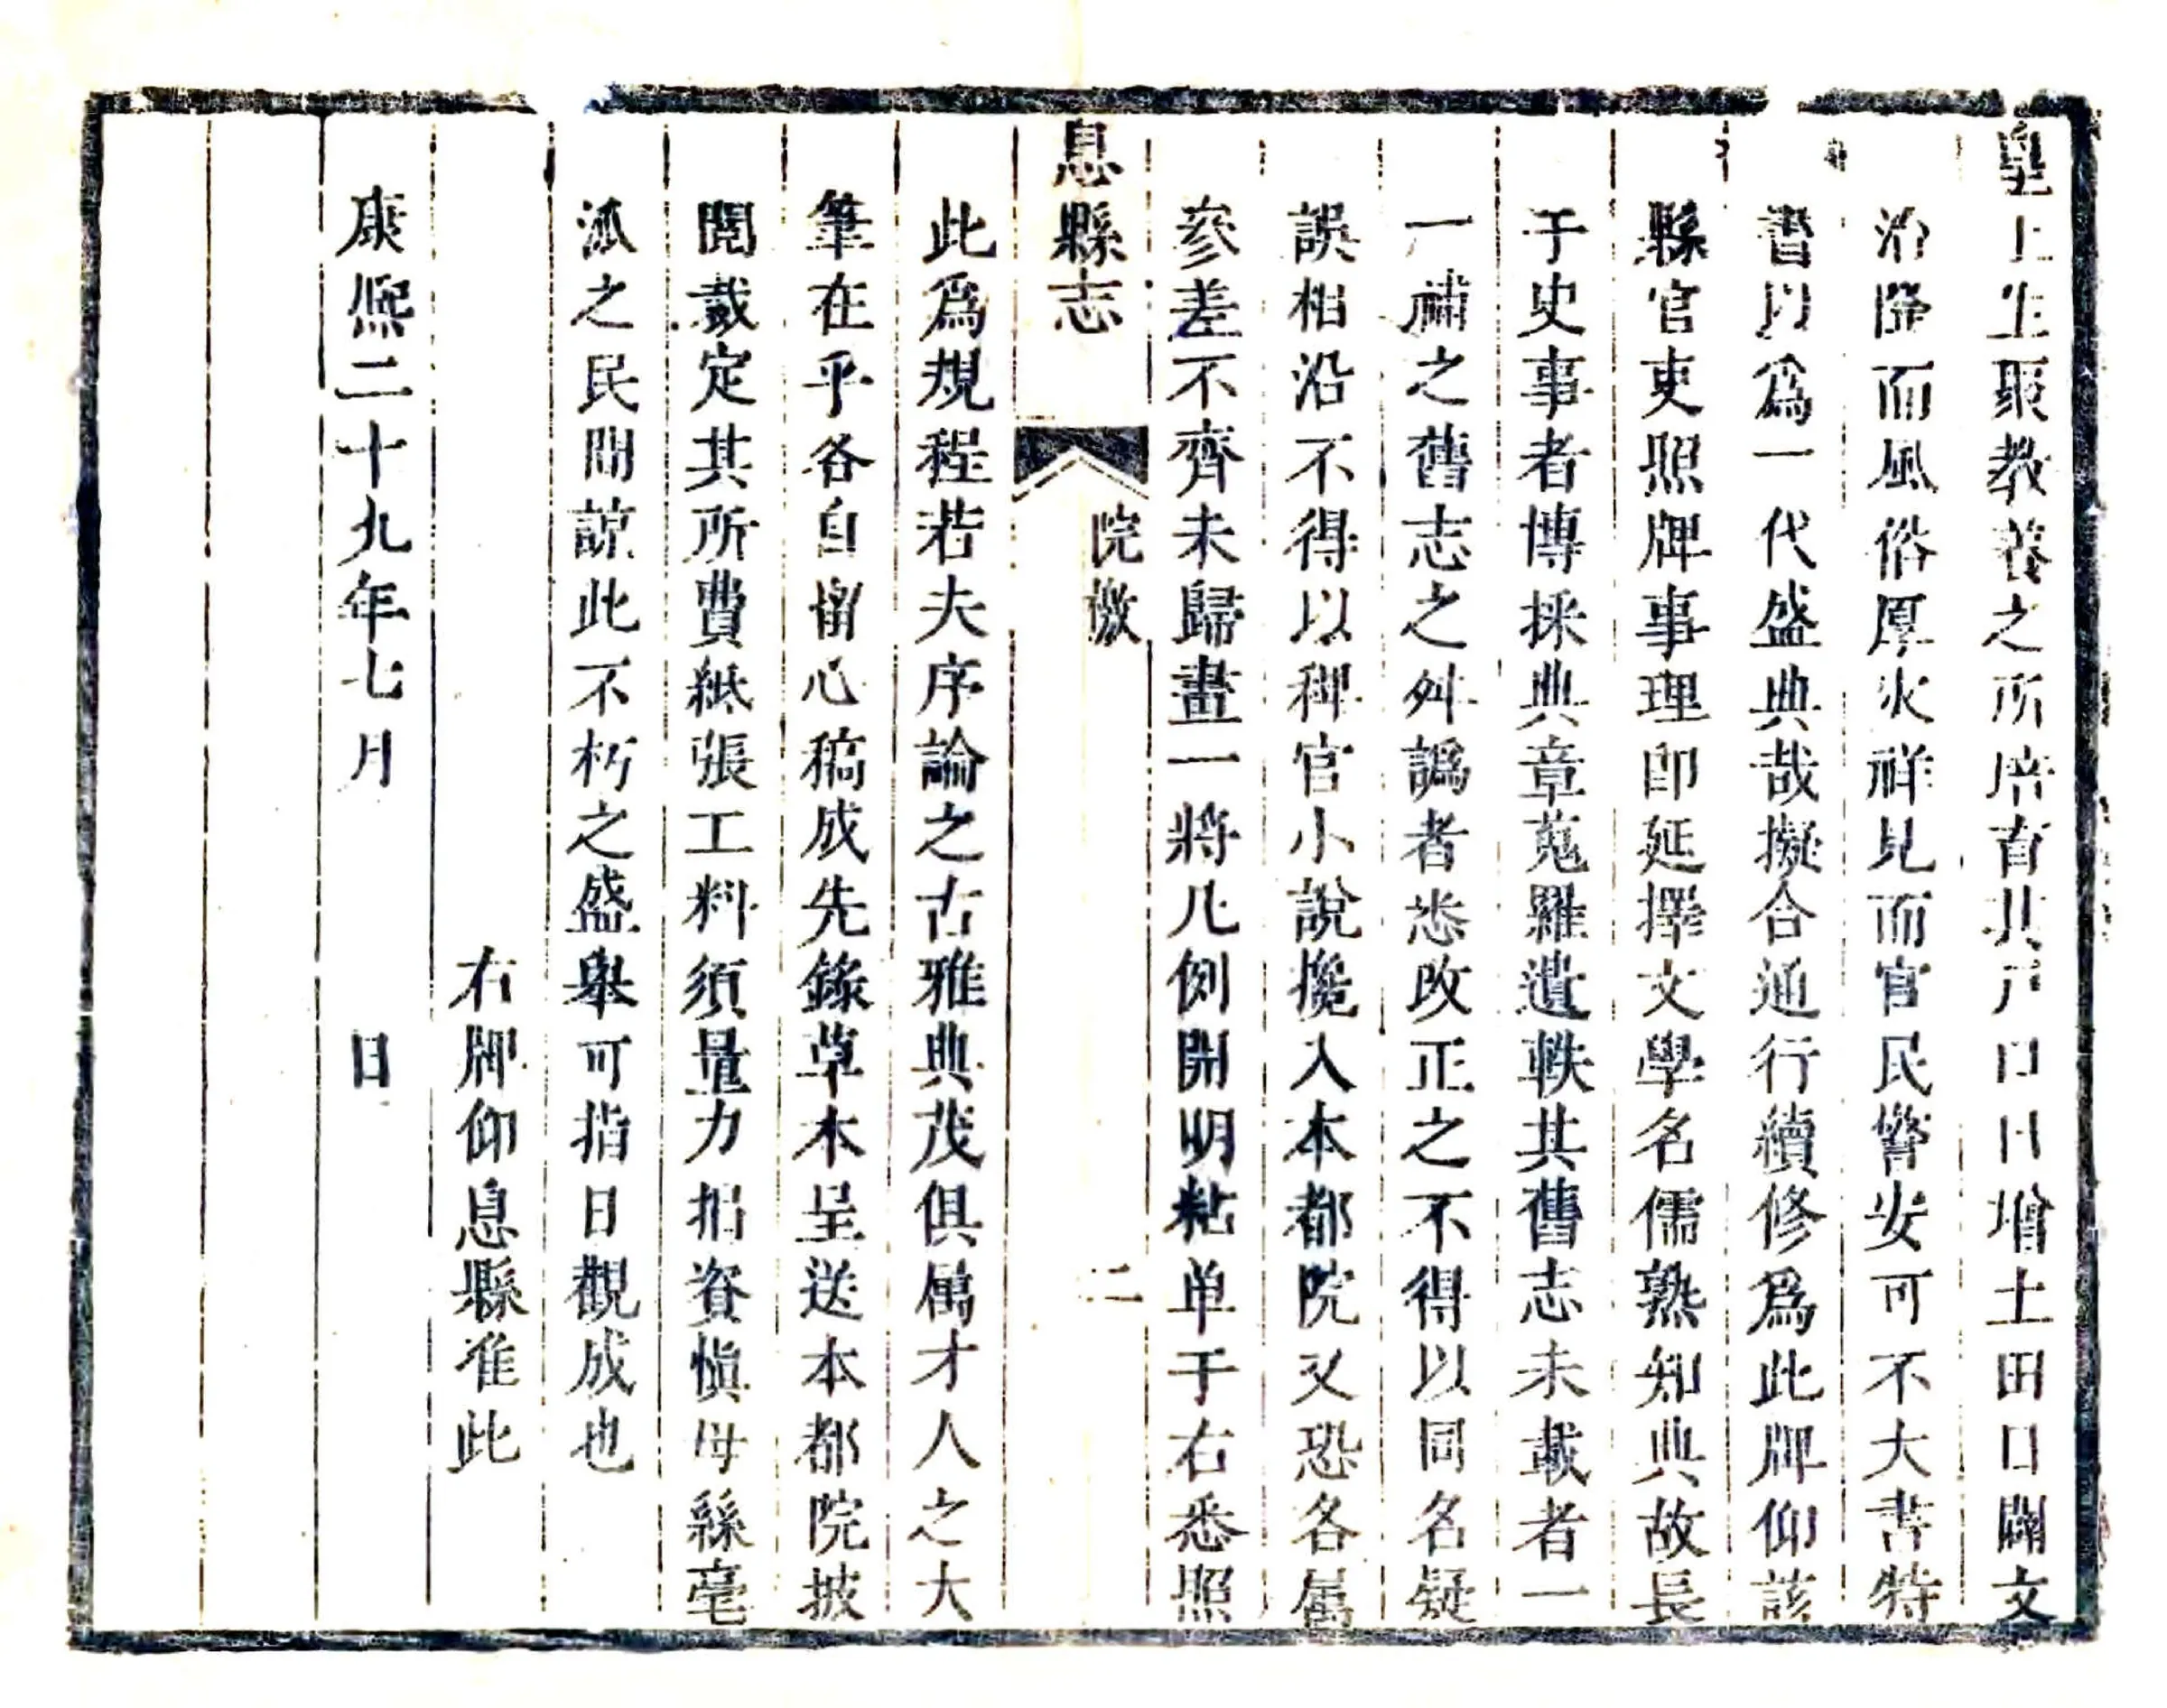 皇上生聚教養之所培育其戶口日增土田日闢文
治隆而風俗厚火祥見而官民警安可不大書特
書以爲一代盛典哉擬合通行續修爲此牌仰該
縣官吏照牌事理卽延擇文學名儒熟知典故長
于史事者博採典章蒐羅遺軼其舊志未載者一
一補之舊志之舛譌者悉改正之不得以同名疑
誤相沿不得以稗官小說攙入本都院又恐各屬
參差不齊未歸畫一將凡例開明粘单于右悉照
息縣志
院檄
二
此爲規程若夫序論之古雅典茂俱屬才人之大
筆在乎各自留心稿成先錄草本呈送本都院披
閱裁定其所費紙張工料須量力捐資愼毋縣毫
派之民間諒此不朽之盛舉可指日觀成也
右牌仰息縣准此
康熙二十九年七月 日